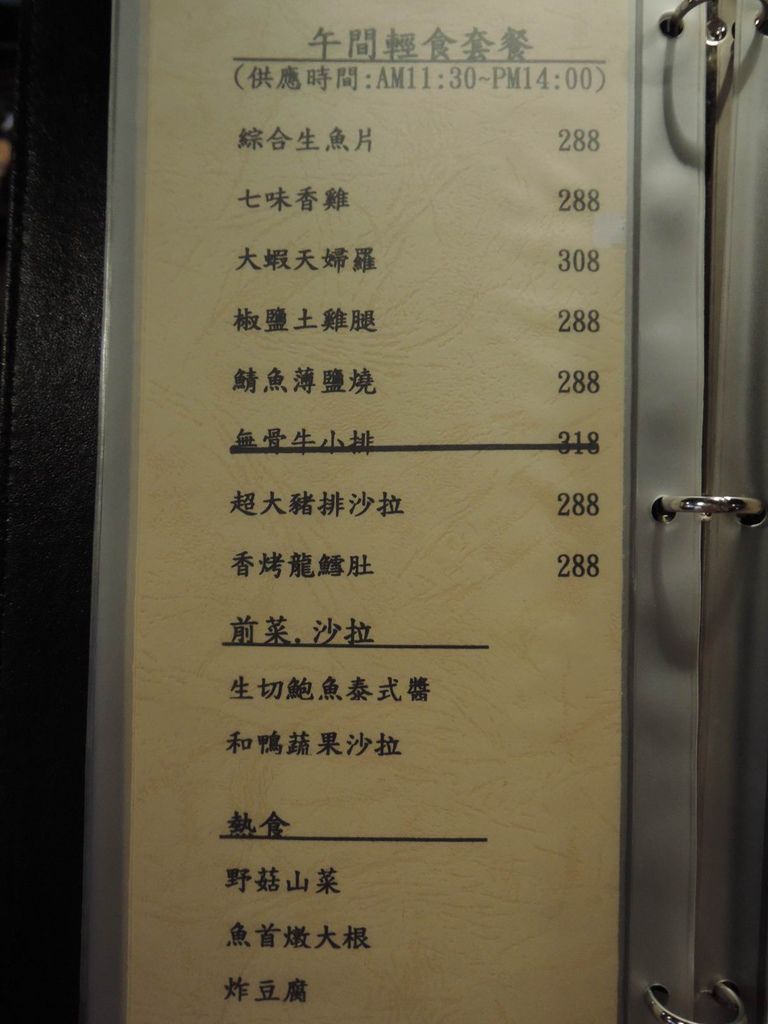 午間輕食套餐
(供應時間:AM11:30~PM14:00)
綜合生魚片 288
七味香雞 288
大蝦天婦羅 308
椒鹽土雞腿 288
鯖魚薄鹽燒 288
無骨牛小排 318
超大豬排沙拉 288
香烤龍鱈肚 288
前菜.沙拉
生切鮑魚泰式醬
和鴨蔬果沙拉
熱食
野菇山菜
魚首燉大根
炸豆腐